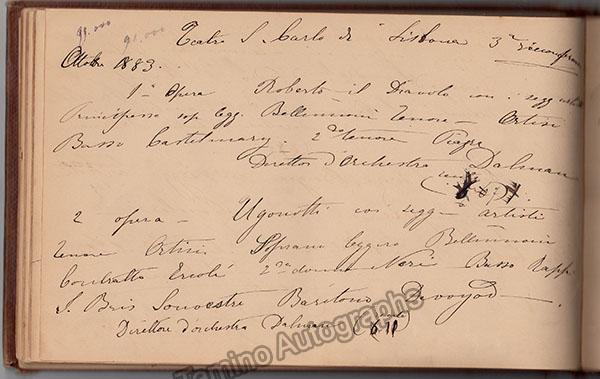 91.000 91.000 Teatro S. Carlo di Lisbona 3ª
Ottobre 1883.
1ª Opera Roberto il Diavolo con i segg artisti
Principessa sop legg. Bellincioni Tenore - Ortisi
Basso Castelmary. 2do tenore
Direttor d'Orchestra Dalmau
2 opera - Ugonotti coi segg artisti
Tenore Ortisi. Soprano leggero Bellincioni
Contralto Ercoli 2da donna Neri Basso Rapp
S. Bris Souvestre Baritono Devoyod.
Direttore d'orchestra Dalmau
Tamino Autographs